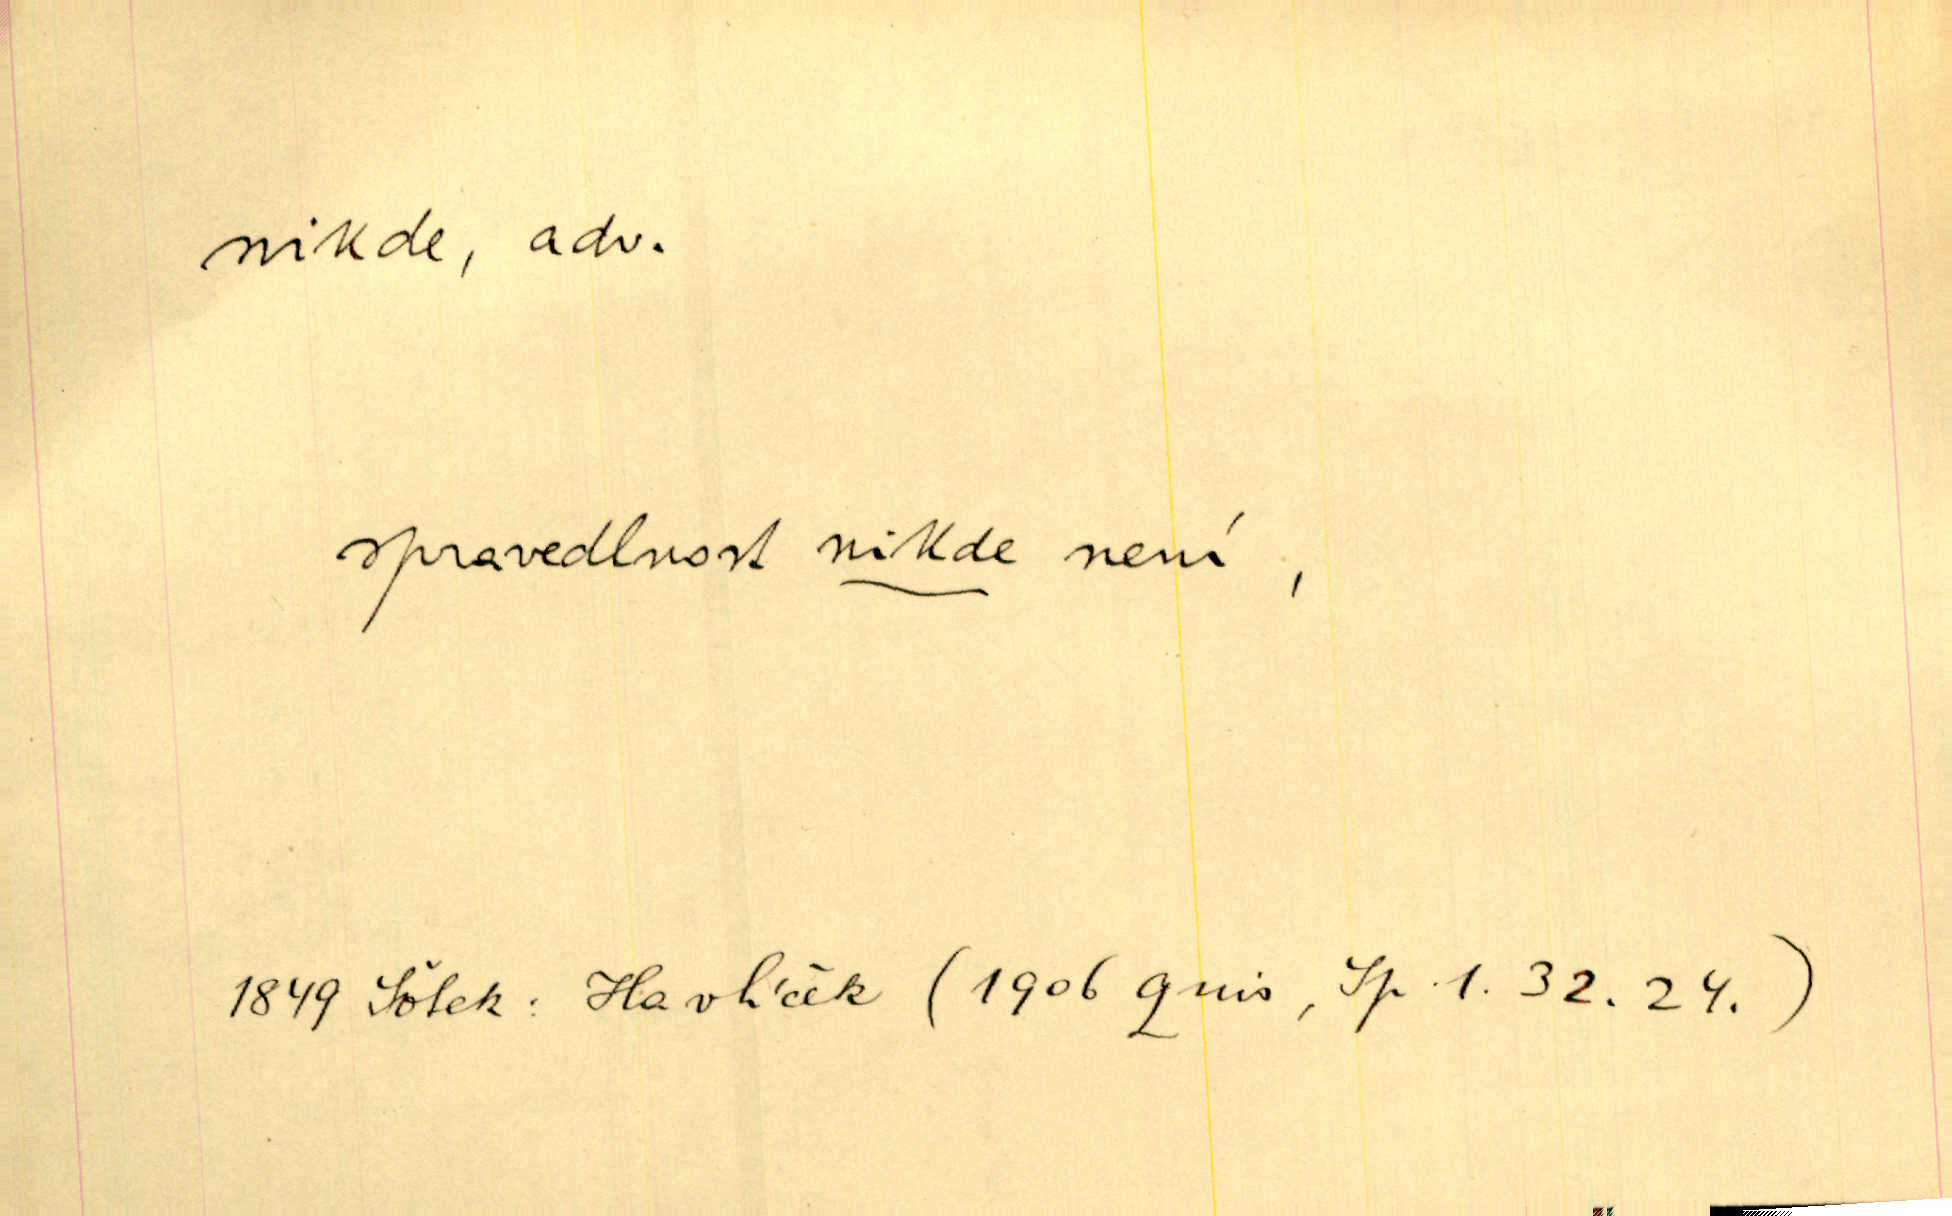 nikde, adv.
spravedlnost nikde není,
1849 Šolek: Havlíček (1906 Quis, Sp. 1. 32. 24.)